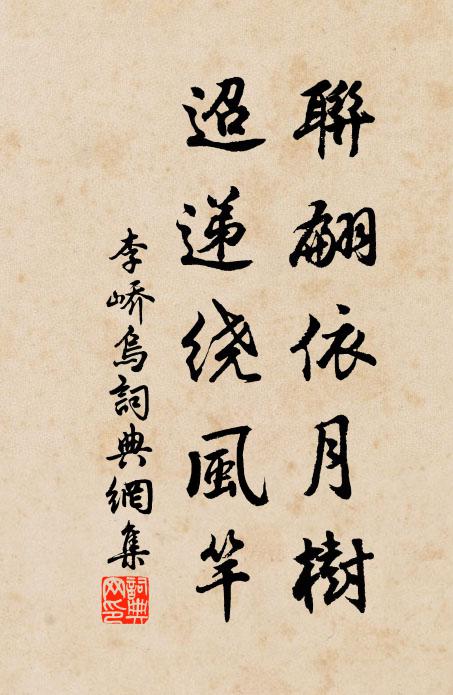 聯翩依月樹
迢遞繞風竿
李嶠烏詞典網集